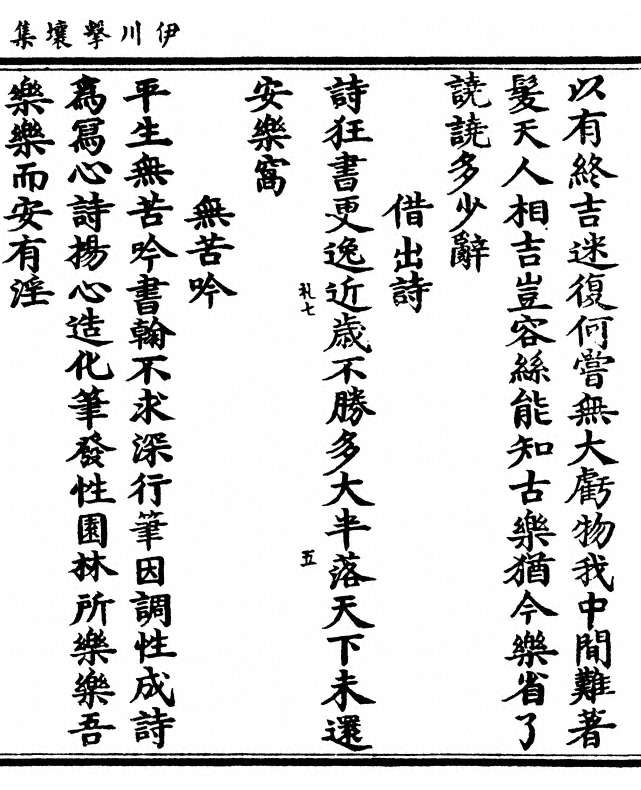 伊川擊壤集
以有終吉迷復何嘗無大虧物我中間難著
髮天人相吉豈容絲能知古樂猶今樂省了
譊譊多少辭
借出詩
詩狂書更逸近歲不勝多大半落天下未還
安樂窩
無苦吟
平生無苦吟書翰不求深行筆因調性成詩
為寫心詩揚心造化筆發性園林所樂樂吾
樂樂而安有淫
札七
五